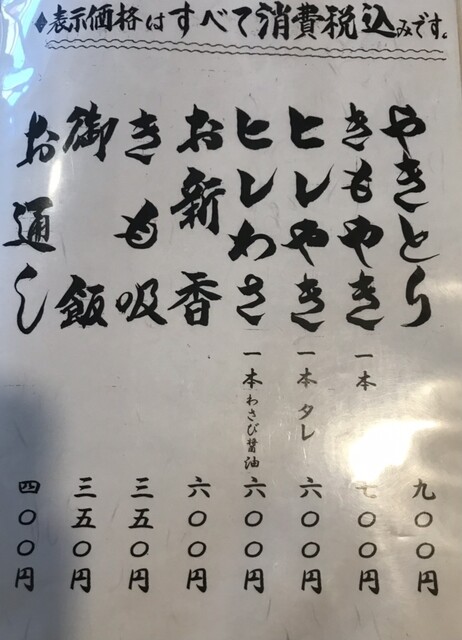 ♦表示価格はすべて消費税込みです。
やきとり 九〇〇円
きもやき 一本 七〇〇円
ヒレやき 一本 タレ 六〇〇円
ヒレわさ 一本 わさび醤油 六〇〇円
お新香 六〇〇円
きも吸 三五〇円
御飯 三五〇円
お通し 四〇〇円